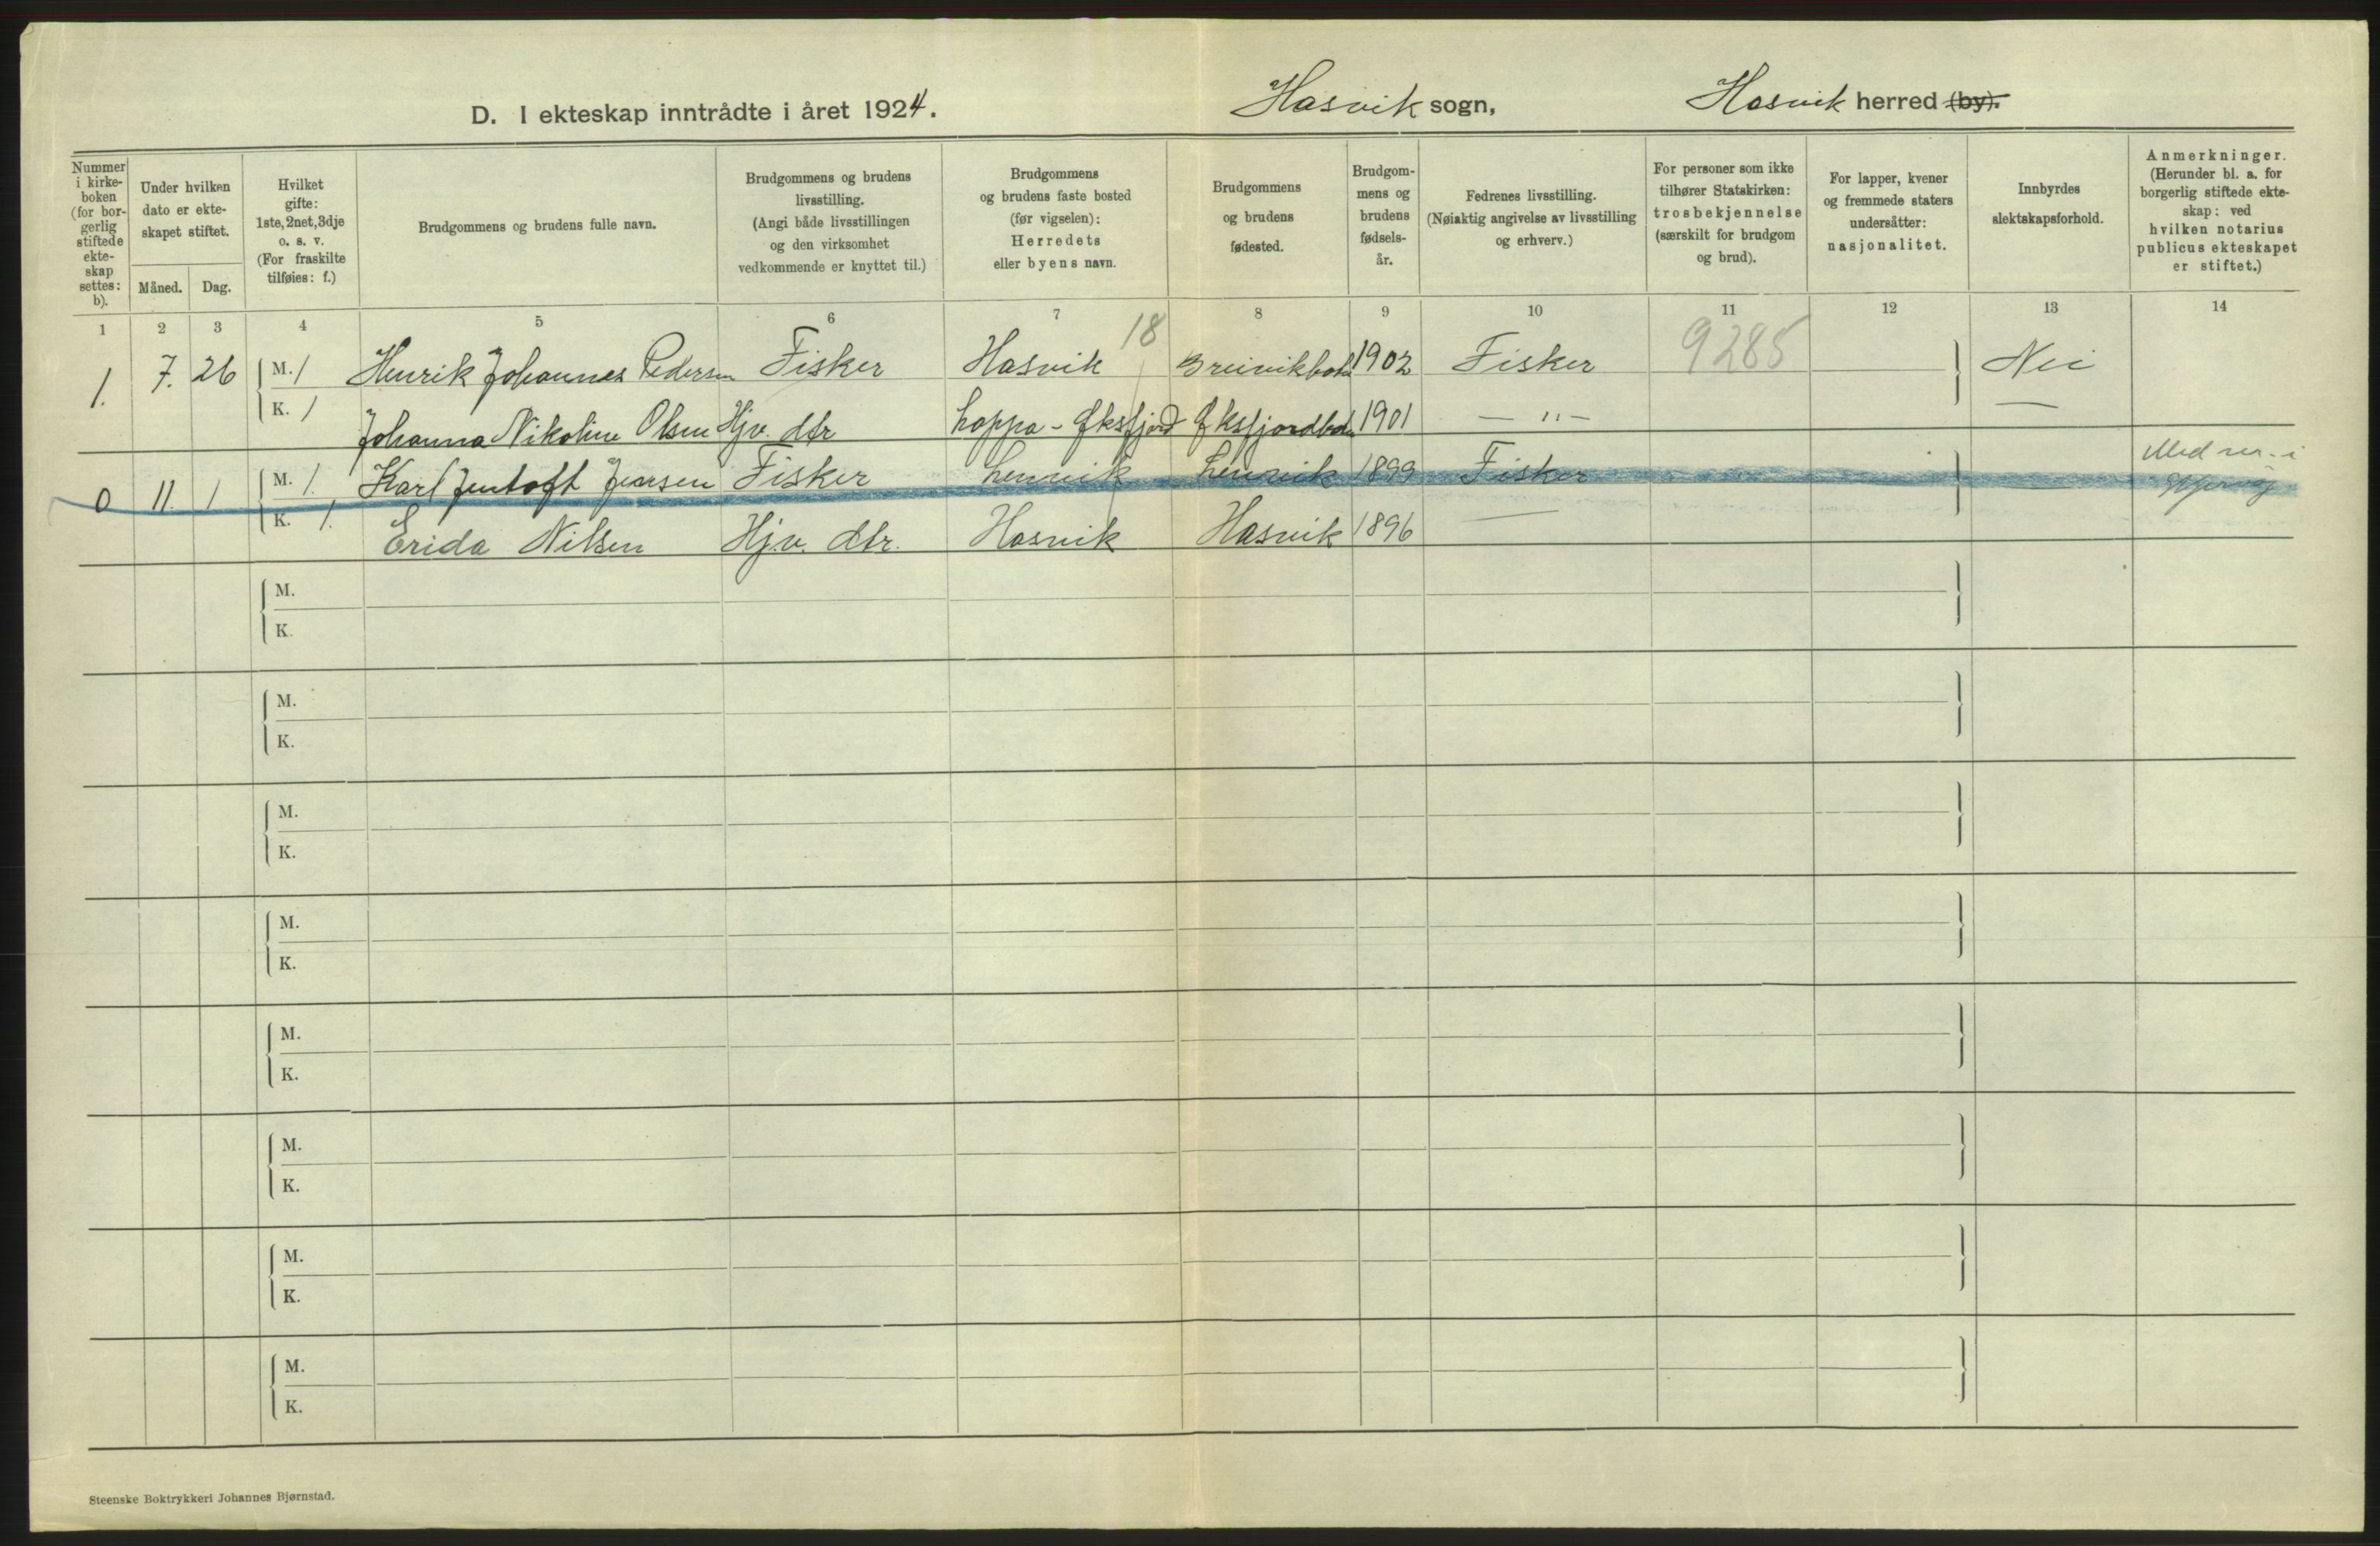 D. I ekteskap inntrådte i året 1924. Hasvik sogn, Hasvik herred (by).
Nummer i kirkeboken (for borgerlig stiftede ekteskap settes: b).
Under hvilken dato er ekteskapet stiftet.
Måned. Dag.
Hvilket gifte: 1ste, 2net, 3dje o. s. v. (For fraskilte tilføies: f.)
Brudgommens og brudens fulle navn.
Brudgommens og brudens livsstilling. (Angi både livsstillingen og den virksomhet vedkommende er knyttet til.)
Brudgommens og brudens faste bosted (før vigselen): Herredets eller byens navn.
Brudgommens og brudens fødested.
Brudgommens og brudens fødselsår.
Fedrenes livsstilling. (Nøiaktig angivelse av livsstilling og erhverv.)
For personer som ikke tilhører Statskirken: trosbekjennelse (særskilt for brudgom og brud).
For lapper, kvener og fremmede staters undersåtter: nasjonalitet.
Innbyrdes slektskapsforhold.
Anmerkninger. (Herunder bl. a. for borgerlig stiftede ekteskap: ved hvilken notarius publicus ekteskapet er stiftet.)
1 2 3 4 5 6 7 8 9 10 11 12 13 14
18
1. 7. 26 M. 1 Henrik Johannes Pedersen Fisker Hasvik Breivikbotn 1902 Fisker 9285 Nei
K. 1 Johanna Nikoline Olsen Hjv. dtr Loppa - Øksfjord Øksfjordbotn 1901 — " — —
0 11. 1 M. 1. Karl Jentoft Jensen Fisker Lenvik Lenvik 1899 Fisker — Med i
K. 1. Erida Nilsen Hjv. dtr. Hasvik Hasvik 1896 —
M.
K.
M.
K.
M.
K.
M.
K.
M.
K.
M.
K.
M.
K.
M.
K.
Steenske Boktrykkeri Johannes Bjørnstad.